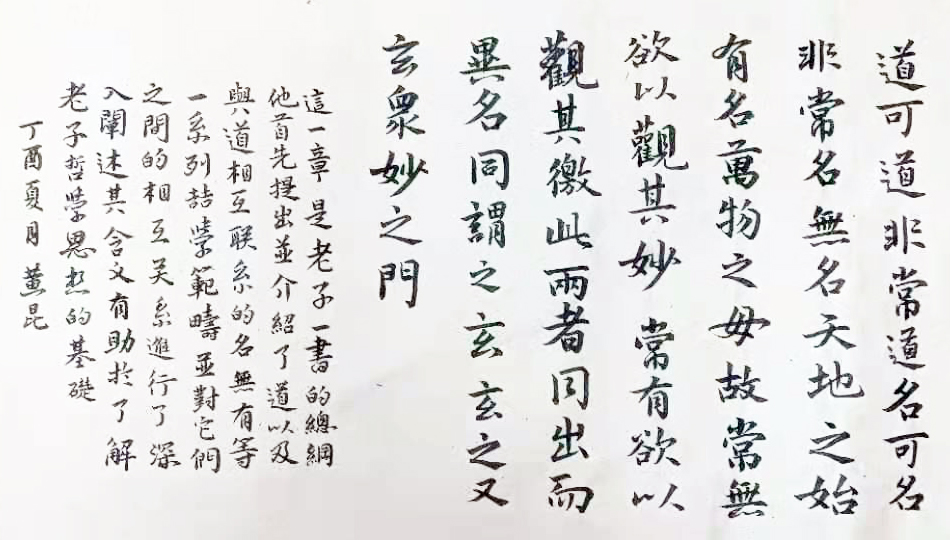 道可道非常道名可名
非常名無名天地之始
有名萬物之母故常無
欲以觀其妙常有欲以
觀其徼此兩者同出而
異名同謂之玄玄之又
玄衆妙之門
這一章是老子一書的總綱
他首先提出並介紹了道以及
與道相互联系的名無有等
一系列喆學範疇並對它們
之間的相互关系進行了深
入闡述其含义有助於了解
老子哲學思想的基礎
丁酉夏月董昆